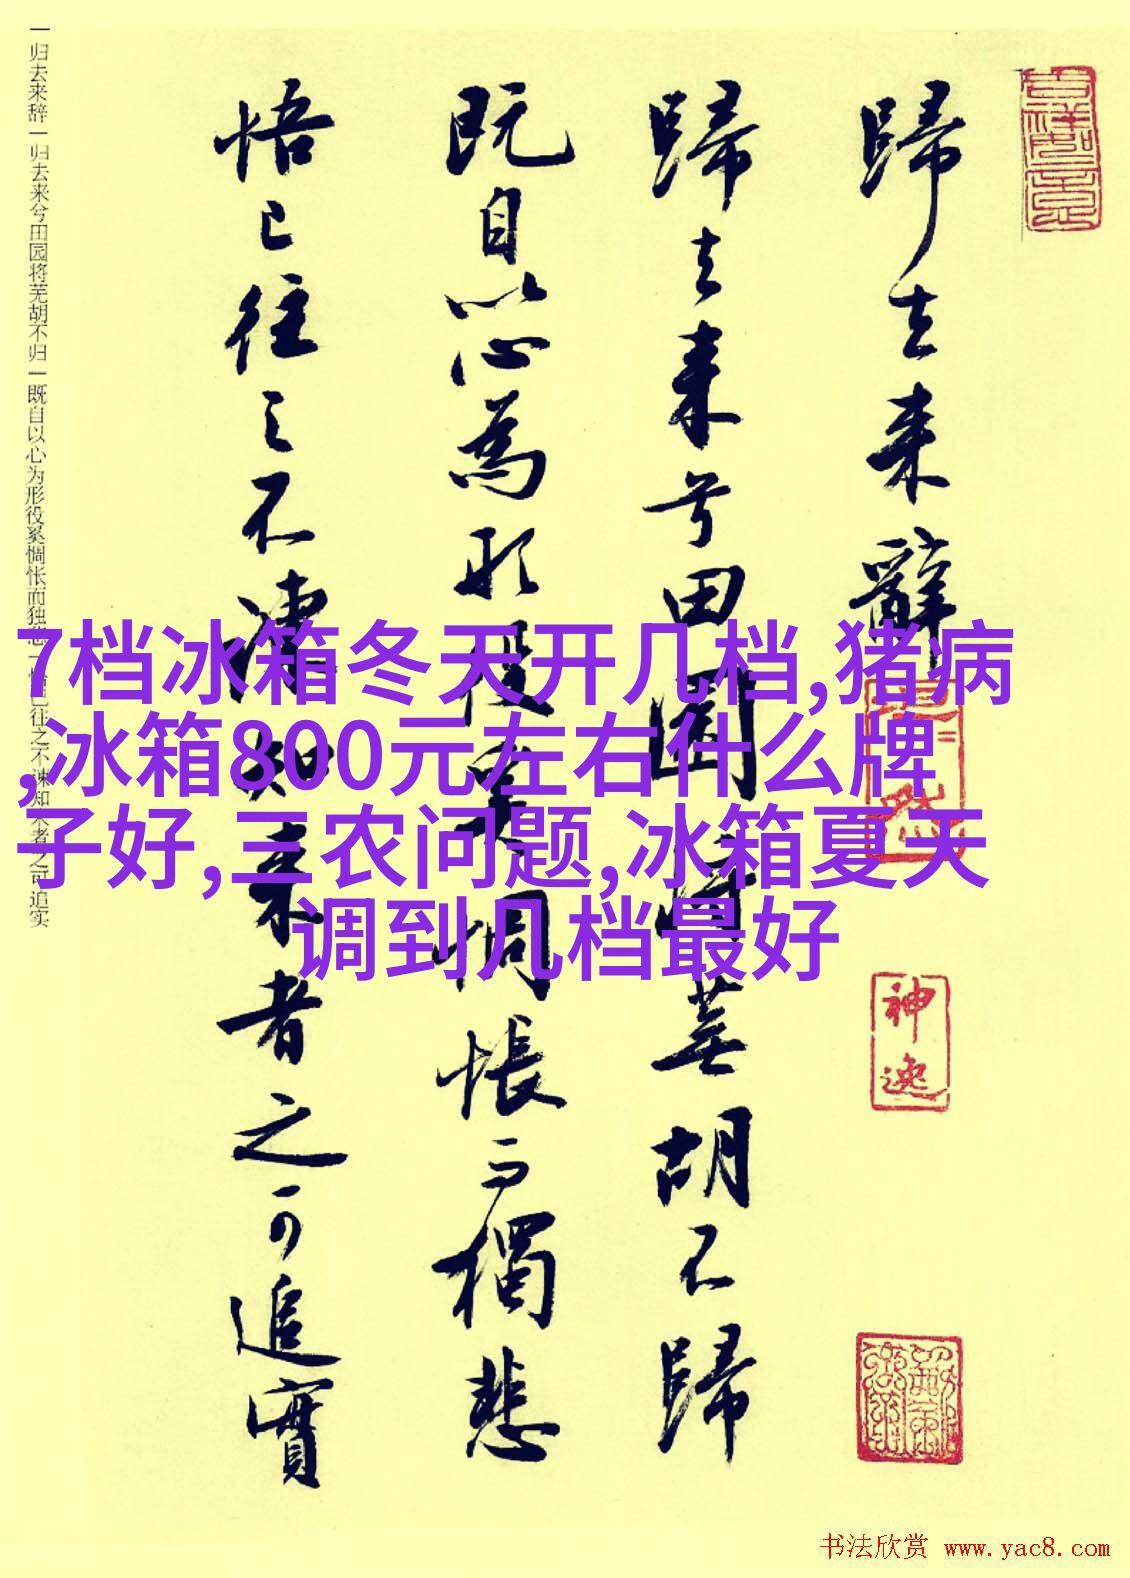 歸去来辭
歸去来兮田園将蕪胡不歸
既自以心為形役奚惆悵而獨悲
悟已往之不諫知来者之可追實
神逸
一归去来辞一归去来兮田园将芜胡不归一既自以心为形役奚惆怅而独悲一悟已往之不谏知来者之可追实
7档冰箱冬天开几档,猪病
,冰箱800元左右什么牌
子好,三农问题,冰箱夏天
调到几档最好
书法欣赏 www.yac8.com